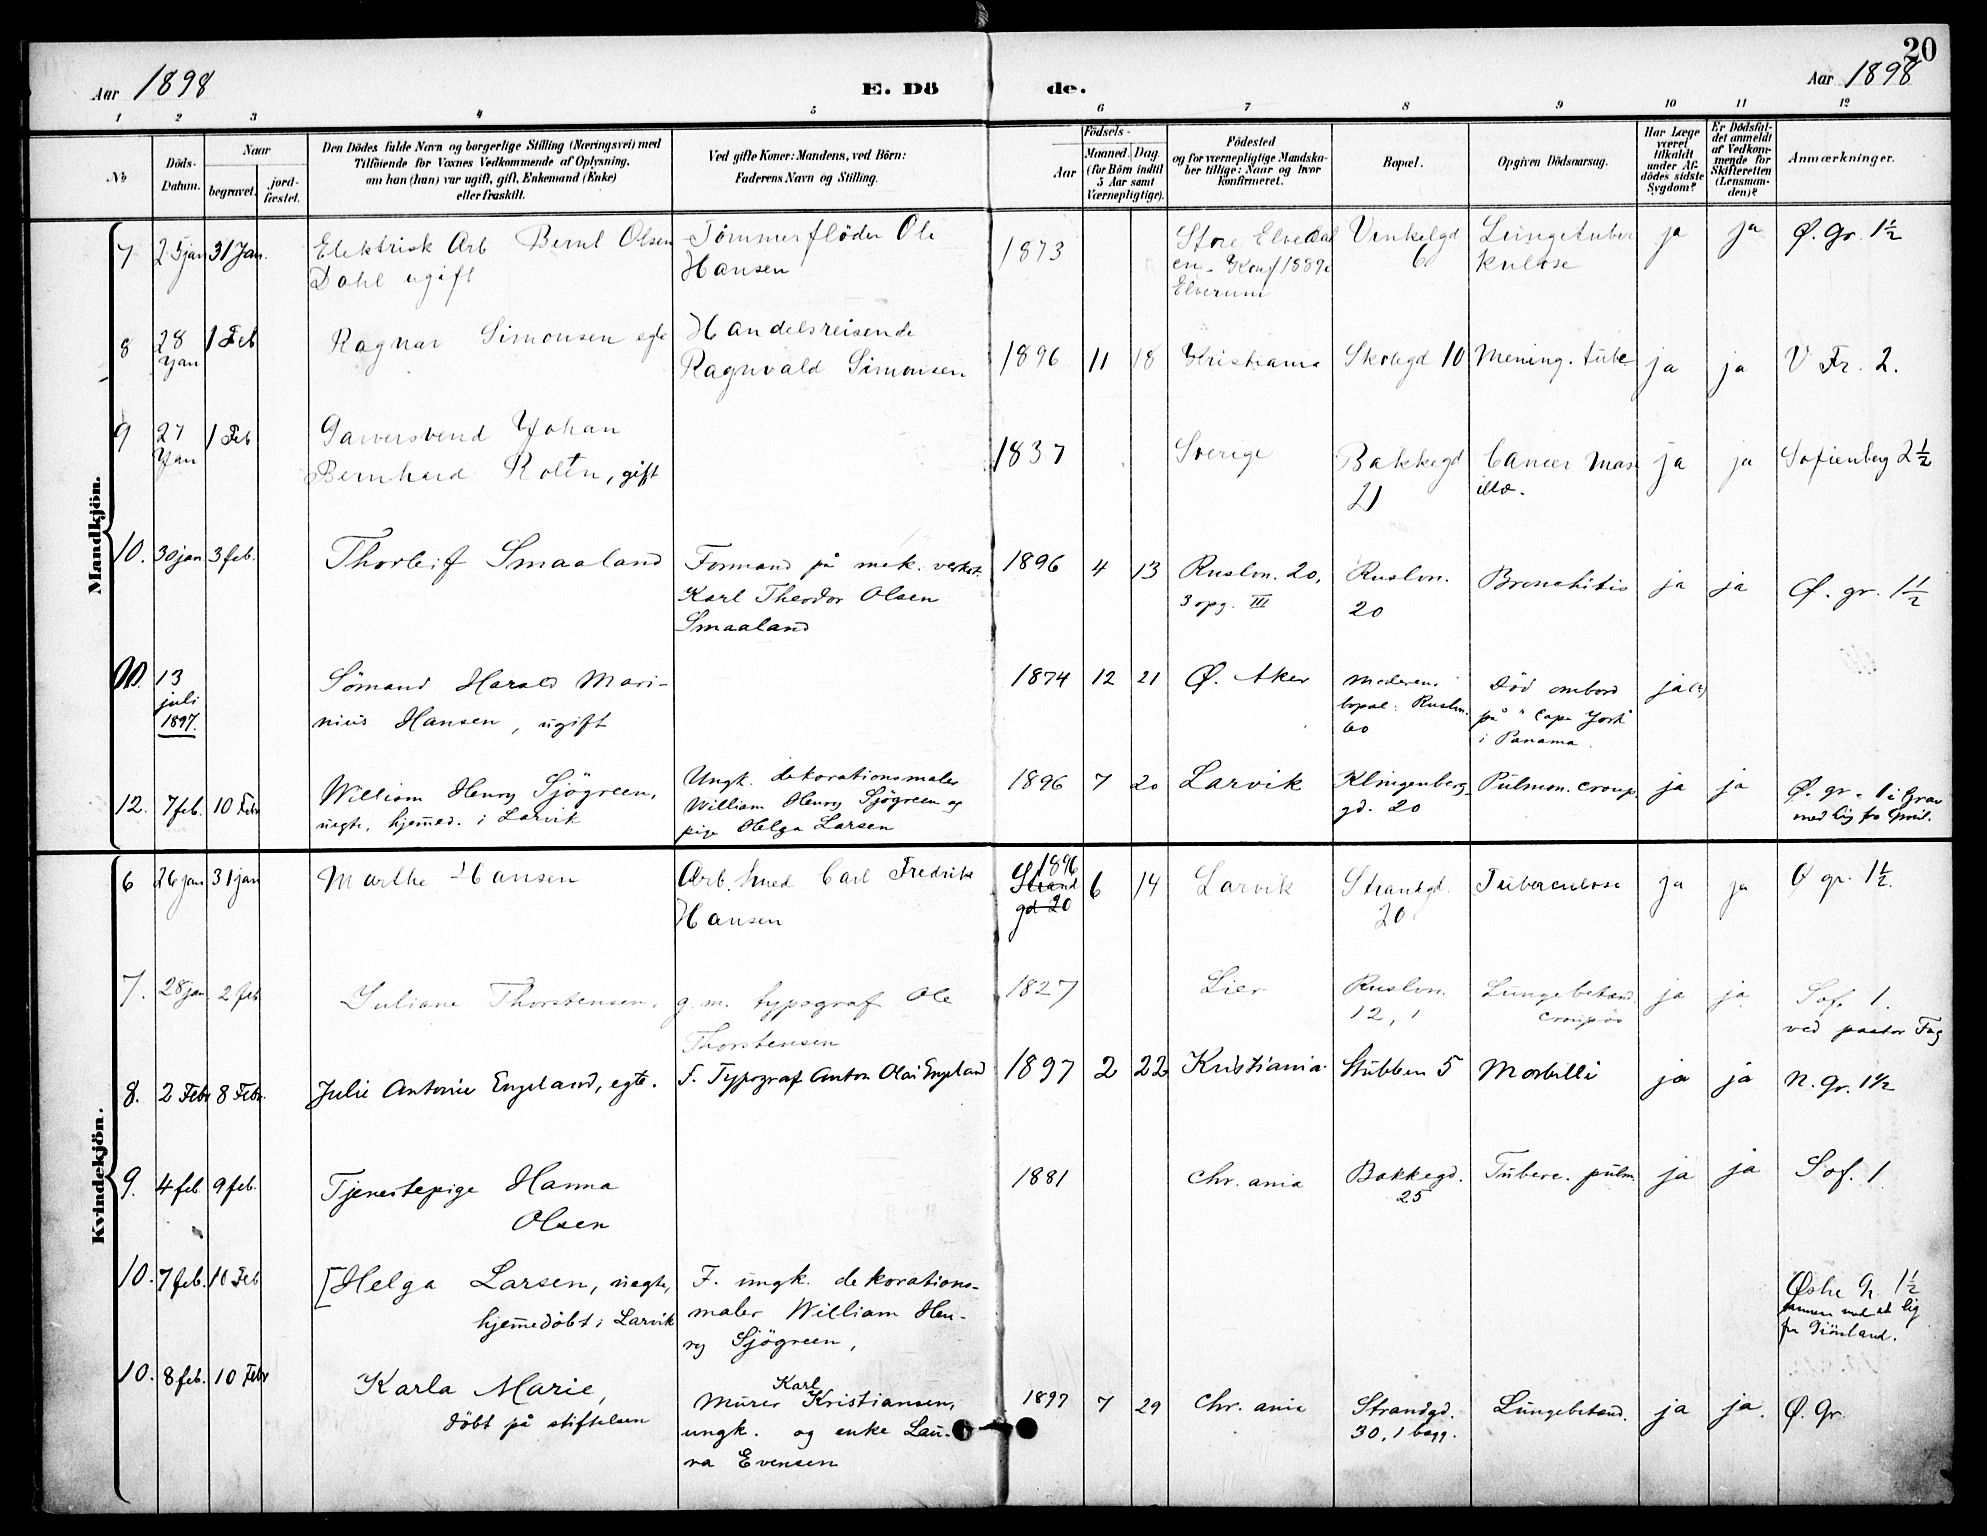 20
Aar 1898
E. Dö
de.
Aar 1898
1 2 3 4 5 6 7 8 9 10 11 12
№
Döds-
Datum.
Naar
begravet.
jord-
fæstet.
Den Dödes fulde Navn og borgerlige Stilling (Næringsvei) med
Tilföiende for Voxnes Vedkommende af Oplysning,
om han (hun) var ugift, gift, Enkemand (Enke)
eller fraskilt.
Ved gifte Koner: Mandens, ved Börn:
Faderens Navn og Stilling.
Födsels-
Aar
Maaned. Dag.
(for Börn indtil
5 Aar samt
Værnepligtige).
Födested
og for værnepligtige Mandska-
ber tillige: Naar og hvor
konfirmeret.
Bopæl.
Opgiven Dödsaarsag.
Har Læge
været
tilkaldt
under Af-
dödes sidste
Sygdom?
Er Dödsfal-
det anmeldt
af Vedkom-
mende for
Skifteretten
(Lensman-
den)?
Anmærkninger.
Mandkjön.
7 25 jan 31 Jan. Elektrisk Arb Bernt Olsen Tömmerflöder Ole 1873 Store Elvedal Vinkelgd Lungetuber ja ja Ø. gr. 1½
Dahl ugift Hansen en. Konf 1889 6 kulose
Elverum
8 28 1 Feb Ragnar Simonsen egte Handelsreisende
Jan Ragnvald Simonsen 1896 11 18 Kristiania Skolegd 10 Mening. tube ja ja V Fr. 2.
9 27 1 Feb Garversvend Johan
Jan Bernhard Rolén, gift 1837 Sverige Bakkegd Cancer Max ja ja Sofienberg 2½
21 illæ.
10. 30 jan 3 feb. Thorleif Smaaland Formand på mek. verkst. 1896 4 13 Ruslön. 20, Ruslön. Bronchitis ja ja Ø. gr. 1½
Karl Theodor Olsen 3 opg. III 20
Smaaland
13 Sömand Harald Mari- 1874 12 21 Ø. Aker moderens Död ombord ja (?)
juli nius Hansen, ugift bopæl: Ruslön. på "Cape York"
1897. 60 i Panama.
12. 7 feb. 10 Febr William Henry Sjögreen, Ungk. dekorationsmaler 1896 7 20 Larvik Klingenberg- Pulmon. croup. ja ja Ø. gr. 1 i Grav
uegte, hjemmed. i Larvik William Henry Sjögreen og gd. 20 med lig fra
pige Helga Larsen
Kvindekjön.
6 26 jan 31 jan Marthe Hansen Arb. Smed Carl Fredrik 1896 6 14 Larvik Strandgd. Tuberculose ja ja Ø gr. 1½.
Hansen Strand gd 20 20
7. 28 jan 2 feb Juliane Thorstensen, g. m. typograf Ole 1827 Lier Ruslön. Lungebetænd. ja ja Sof. 1.
Thorstensen 12, 1 croupøs ved pastor
8. 2 Febr 8 Febr. Julie Antonie Engeland, egte. F. Typograf Anton Olai Engeland 1897 2 22 Kristiania Stubben 5 Morbilli ja ja N. Gr. 1½
9. 4 feb. 9 feb. Tjenestepige Hanna 1881 Chr. ania Bakkegd. Tuberc. pulm. ja ja Sof. 1.
Olsen 25
10. 7 feb. 10 Feb [Helga Larsen, uegte, F. ungk. dekorations- Østre Gr. 1½
hjemmedöbt i Larvik maler William Hen- sammen med et lig
ry Sjögreen, fra Grönland.
10. 8 feb. 10 Febr Karla Marie, Murer Karl Kristiansen, 1897 7 29 Chr. ania Strandgd. Lungebetænd. ja ja. Ø. Gr.
döbt på stiftelsen ungk. og enke Lau- 30, 1 bagg.
ra Evensen